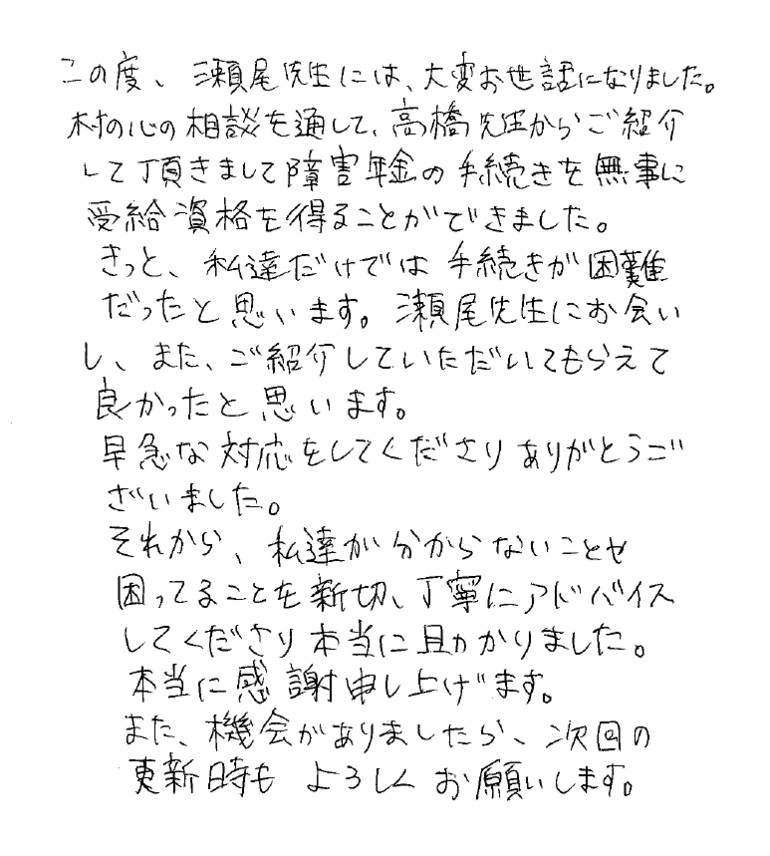 この度、瀬尾先生には、大変お世話になりました。
村の心の相談を通して、高橋先生からご紹介
して頂きまして障害年金の手続きを無事に
受給資格を得ることができました。
きっと、私達だけでは手続きが困難
だったと思います。瀬尾先生にお会い
し、また、ご紹介していただいてもらえて
良かったと思います。
早急な対応をしてくださりありがとうご
ざいました。
それから、私達が分からないことや
困ってることを新切、丁寧にアドバイス
してくださり本当に助かりました。
本当に感謝申し上げます。
また、機会がありましたら、次回の
更新時もよろしくお願いします。